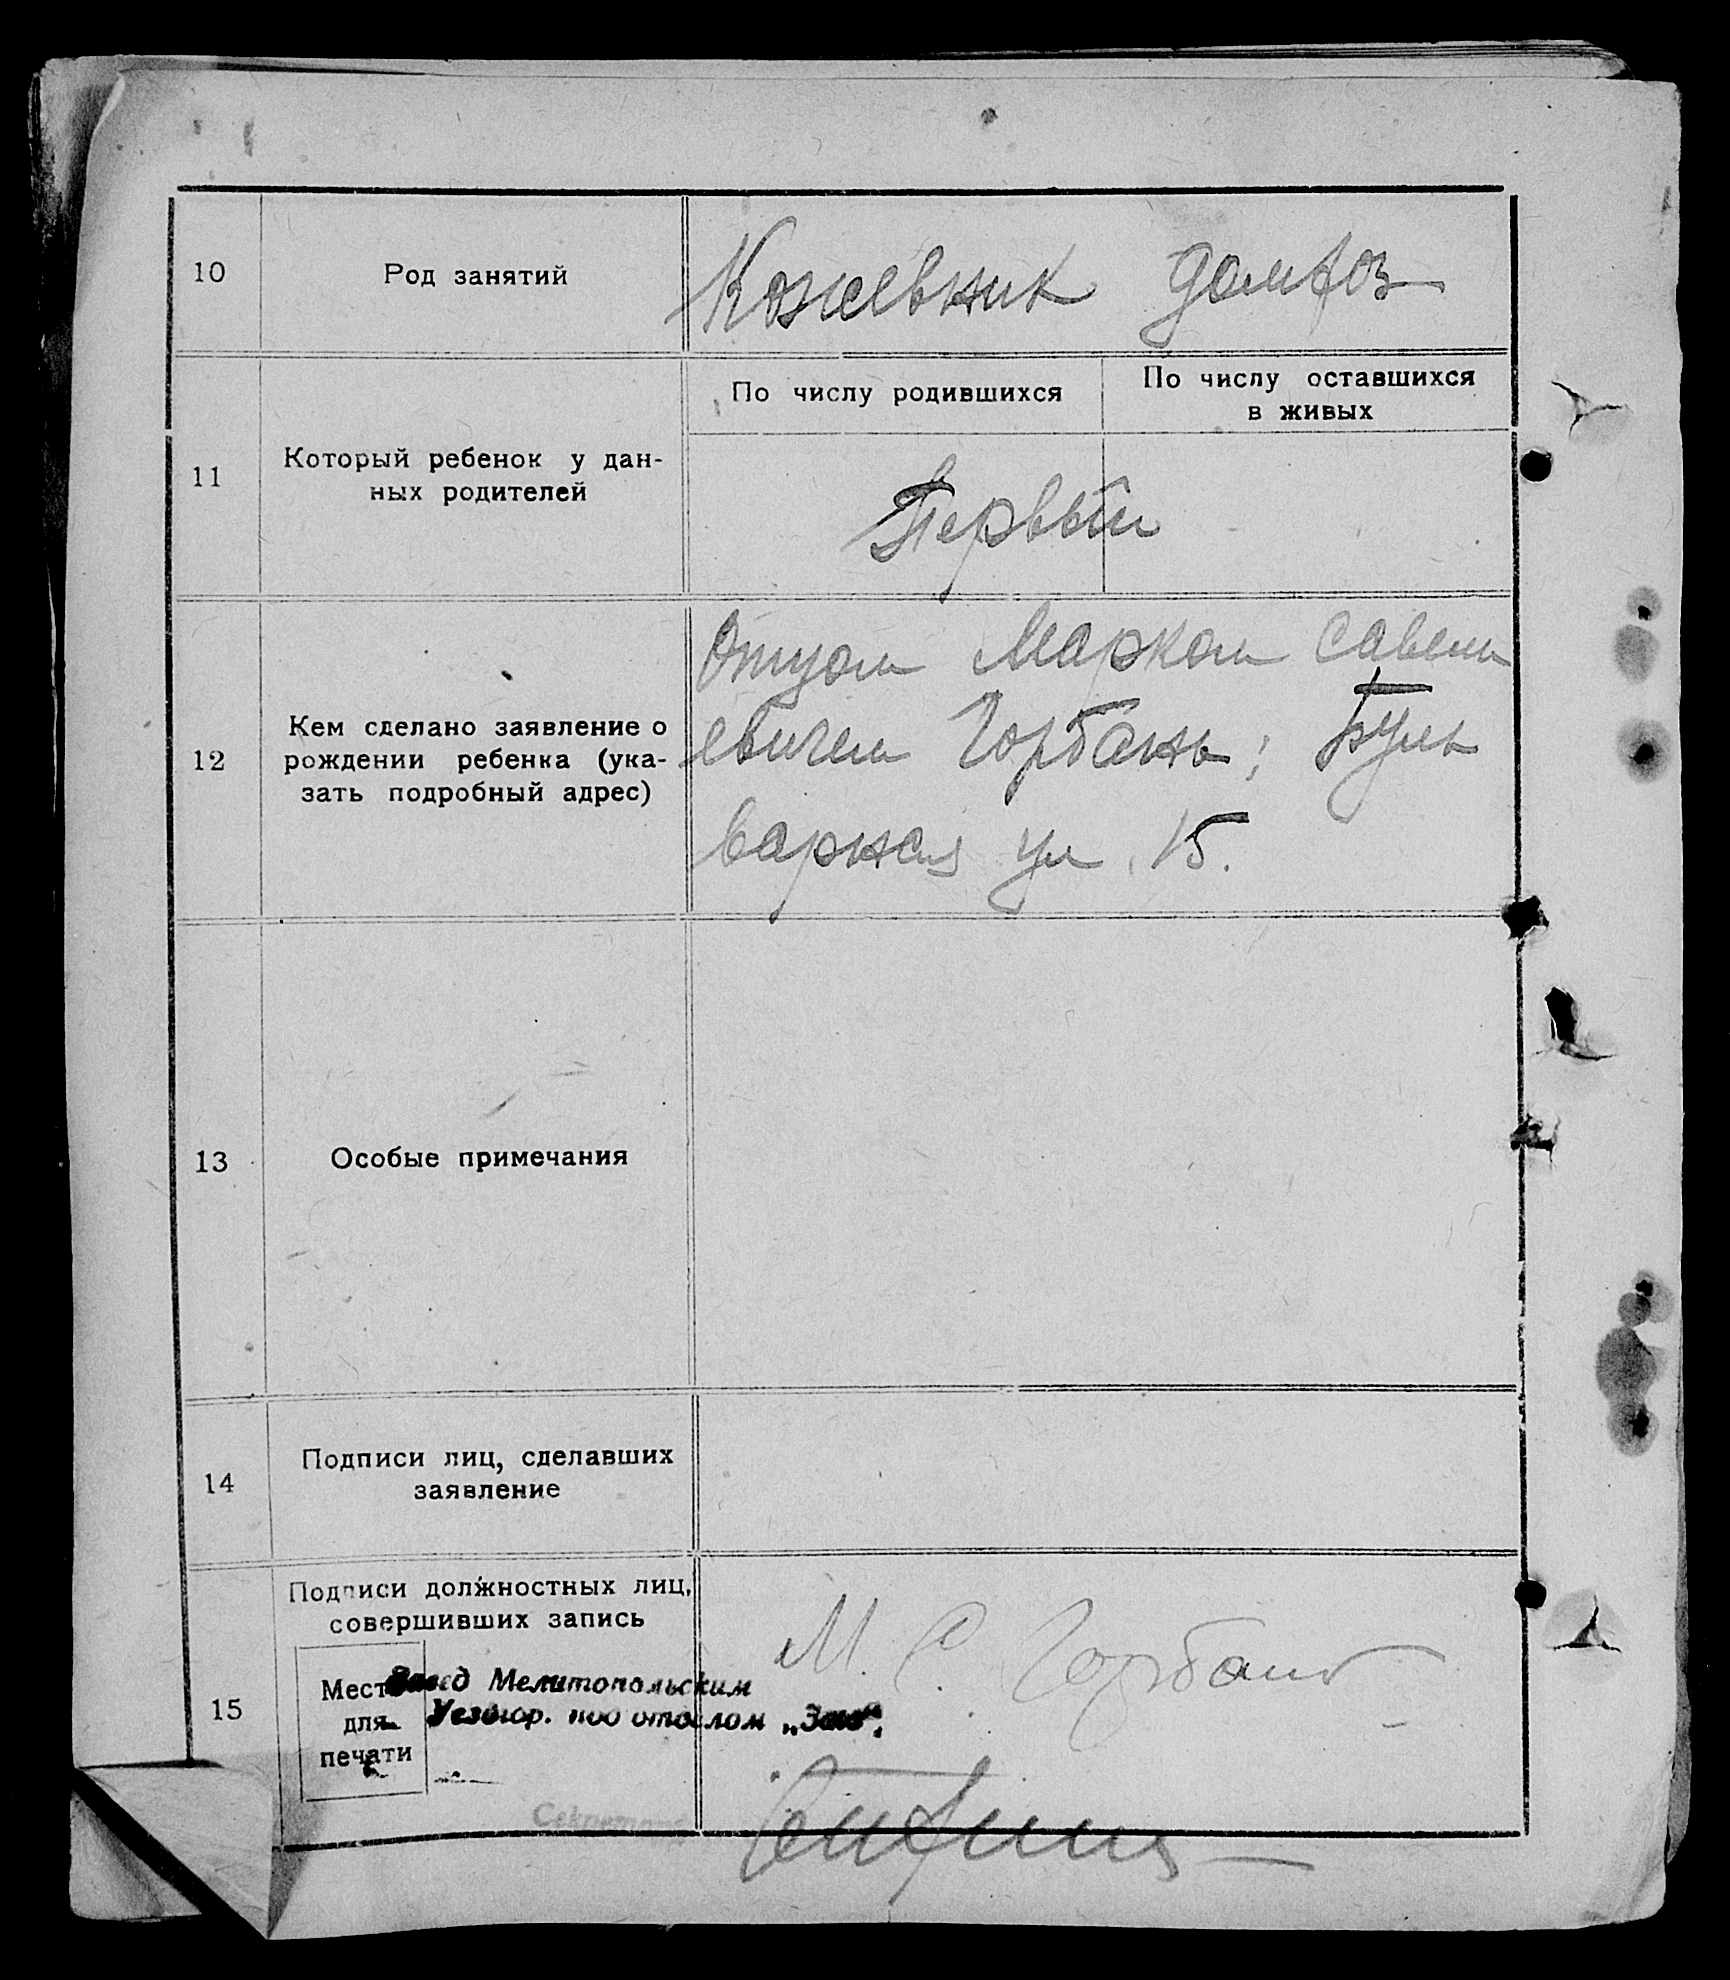 10 Род занятий Кожевник домхоз
По числу родившихся По числу оставшихся
в живых
11 Который ребенок у дан-
ных родителей
Первый
12 Кем сделано заявление о
рождении ребенка (ука-
зать подробный адрес)
Отцом Марком Савели
евичем Горбань; Буль
варная ул. 15.
13 Особые примечания
14 Подписи лиц, сделавших
заявление
15 Подписи должностных лиц,
совершивших запись
Место
для
печати
Завед Мелитопольским
Уезгор. под отделом „Загс“.
Секретарь
М. С. Горбань